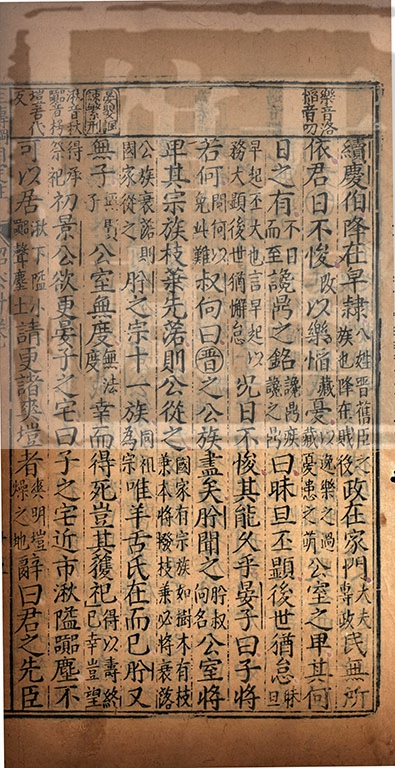 樂音洛
慆音叨
續慶伯降在皁隸八姓晉舊臣之族也降在賤役政在家門大夫專政民無所
依君日不悛改以樂慆藏憂以逸樂之過藏憂患之萌公室之卑其何
日之有不日而至讒鼎之銘讒鼎疾讒之鼎曰昧旦丕顯後世猶怠昧旦
早起丕大也言早起以務大顯後世猶懈怠況日不悛其能久乎晏子曰子將
若何問何以免此難叔向曰晉之公族盡矣肸聞之肸叔向名公室將
卑其宗族枝葉先落則公從之國家有宗族如樹木有枝葉本將撥枝葉必將衰落
公族衰落則國家從之肸之宗十一族同祖為宗唯羊舌氏在而已肸又
無子無賢子公室無度無法度幸而得死豈其獲祀得以壽終已幸豈望
湫音秋
囂音枵
得承祭祀初景公欲更晏子之宅曰子之宅近市湫隘囂塵不
塏苦代反
可以居湫下隘小囂聲塵土請更諸爽塏者爽明塏燥之地辭曰君之先臣